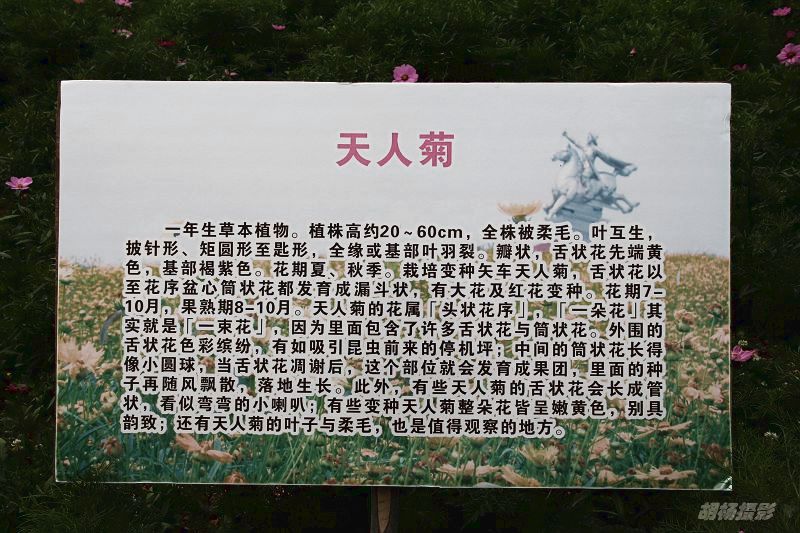 天人菊
一年生草本植物。植株高约20~60cm，全株被柔毛。叶互生，
披针形、矩圆形至匙形，全缘或基部叶羽裂。瓣状，舌状花先端黄
色，基部褐紫色。花期夏、秋季。栽培变种矢车天人菊，舌状花以
至花序盆心筒状花都发育成漏斗状，有大花及红花变种。花期7-
10月，果熟期8-10月。天人菊的花属「头状花序」，「一朵花」其
实就是「一束花」，因为里面包含了许多舌状花与筒状花。外围的
舌状花色彩缤纷，有如吸引昆虫前来的停机坪；中间的筒状花长得
像小圆球，当舌状花凋谢后，这个部位就会发育成果团，里面的种
子再随风飘散，落地生长。此外，有些天人菊的舌状花会长成管
状，看似弯弯的小喇叭；有些变种天人菊整朵花皆呈嫩黄色，别具
韵致；还有天人菊的叶子与柔毛，也是值得观察的地方。
胡杨摄影